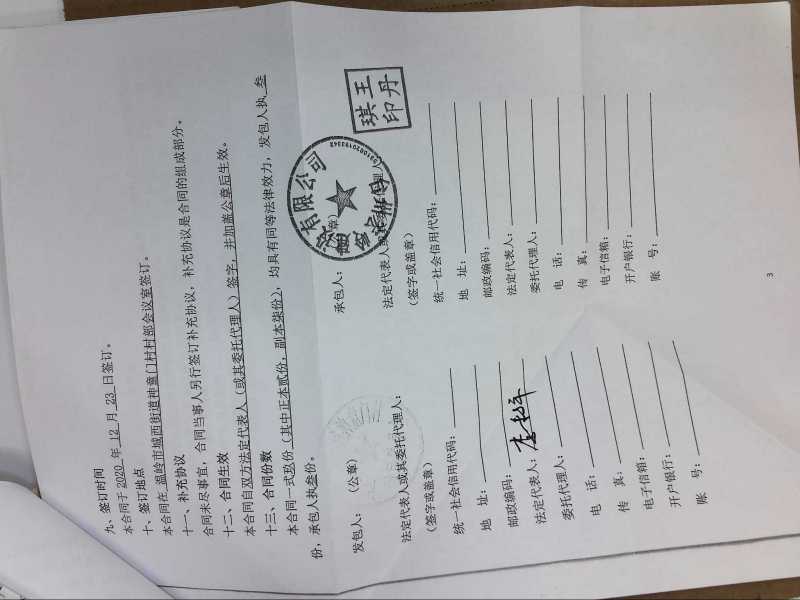 九、签订时间
本合同于 2020 年 12 月 23 日签订。
十、签订地点
本合同在 温岭市城西街道神童门村村部会议室签订。
十一、补充协议
合同未尽事宜，合同当事人另行签订补充协议，补充协议是合同的组成部分。
十二、合同生效
本合同自双方法定代表人（或其委托代理人）签字，并加盖公章后生效。
十三、合同份数
本合同一式玖份（其中正本贰份，副本柒份），均具有同等法律效力，发包人执 叁
份，承包人执叁份。
发包人： （公章）
法定代表人或其委托代理人：
（签字或盖章）
统一社会信用代码：
地 址：
邮政编码：
法定代表人：
委托代理人：
电 话：
传 真：
电子信箱：
开户银行：
账 号：
承包人： 章）
法定代表人或其 理人）
（签字或盖章）
统一社会信用代码：
地 址：
邮政编码：
法定代表人：
委托代理人：
电 话：
传 真：
电子信箱：
开户银行：
账 号：
设有限公司
王丹
琪印
3